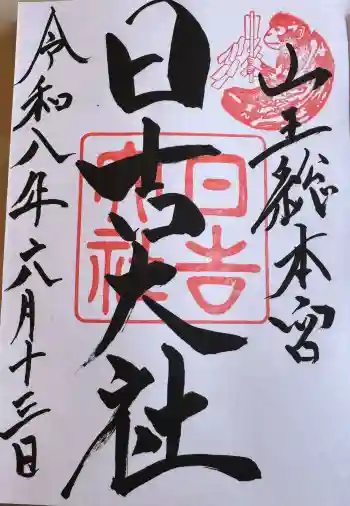 山王総本宮
日吉大社
日吉大社
令和八年六月十三日